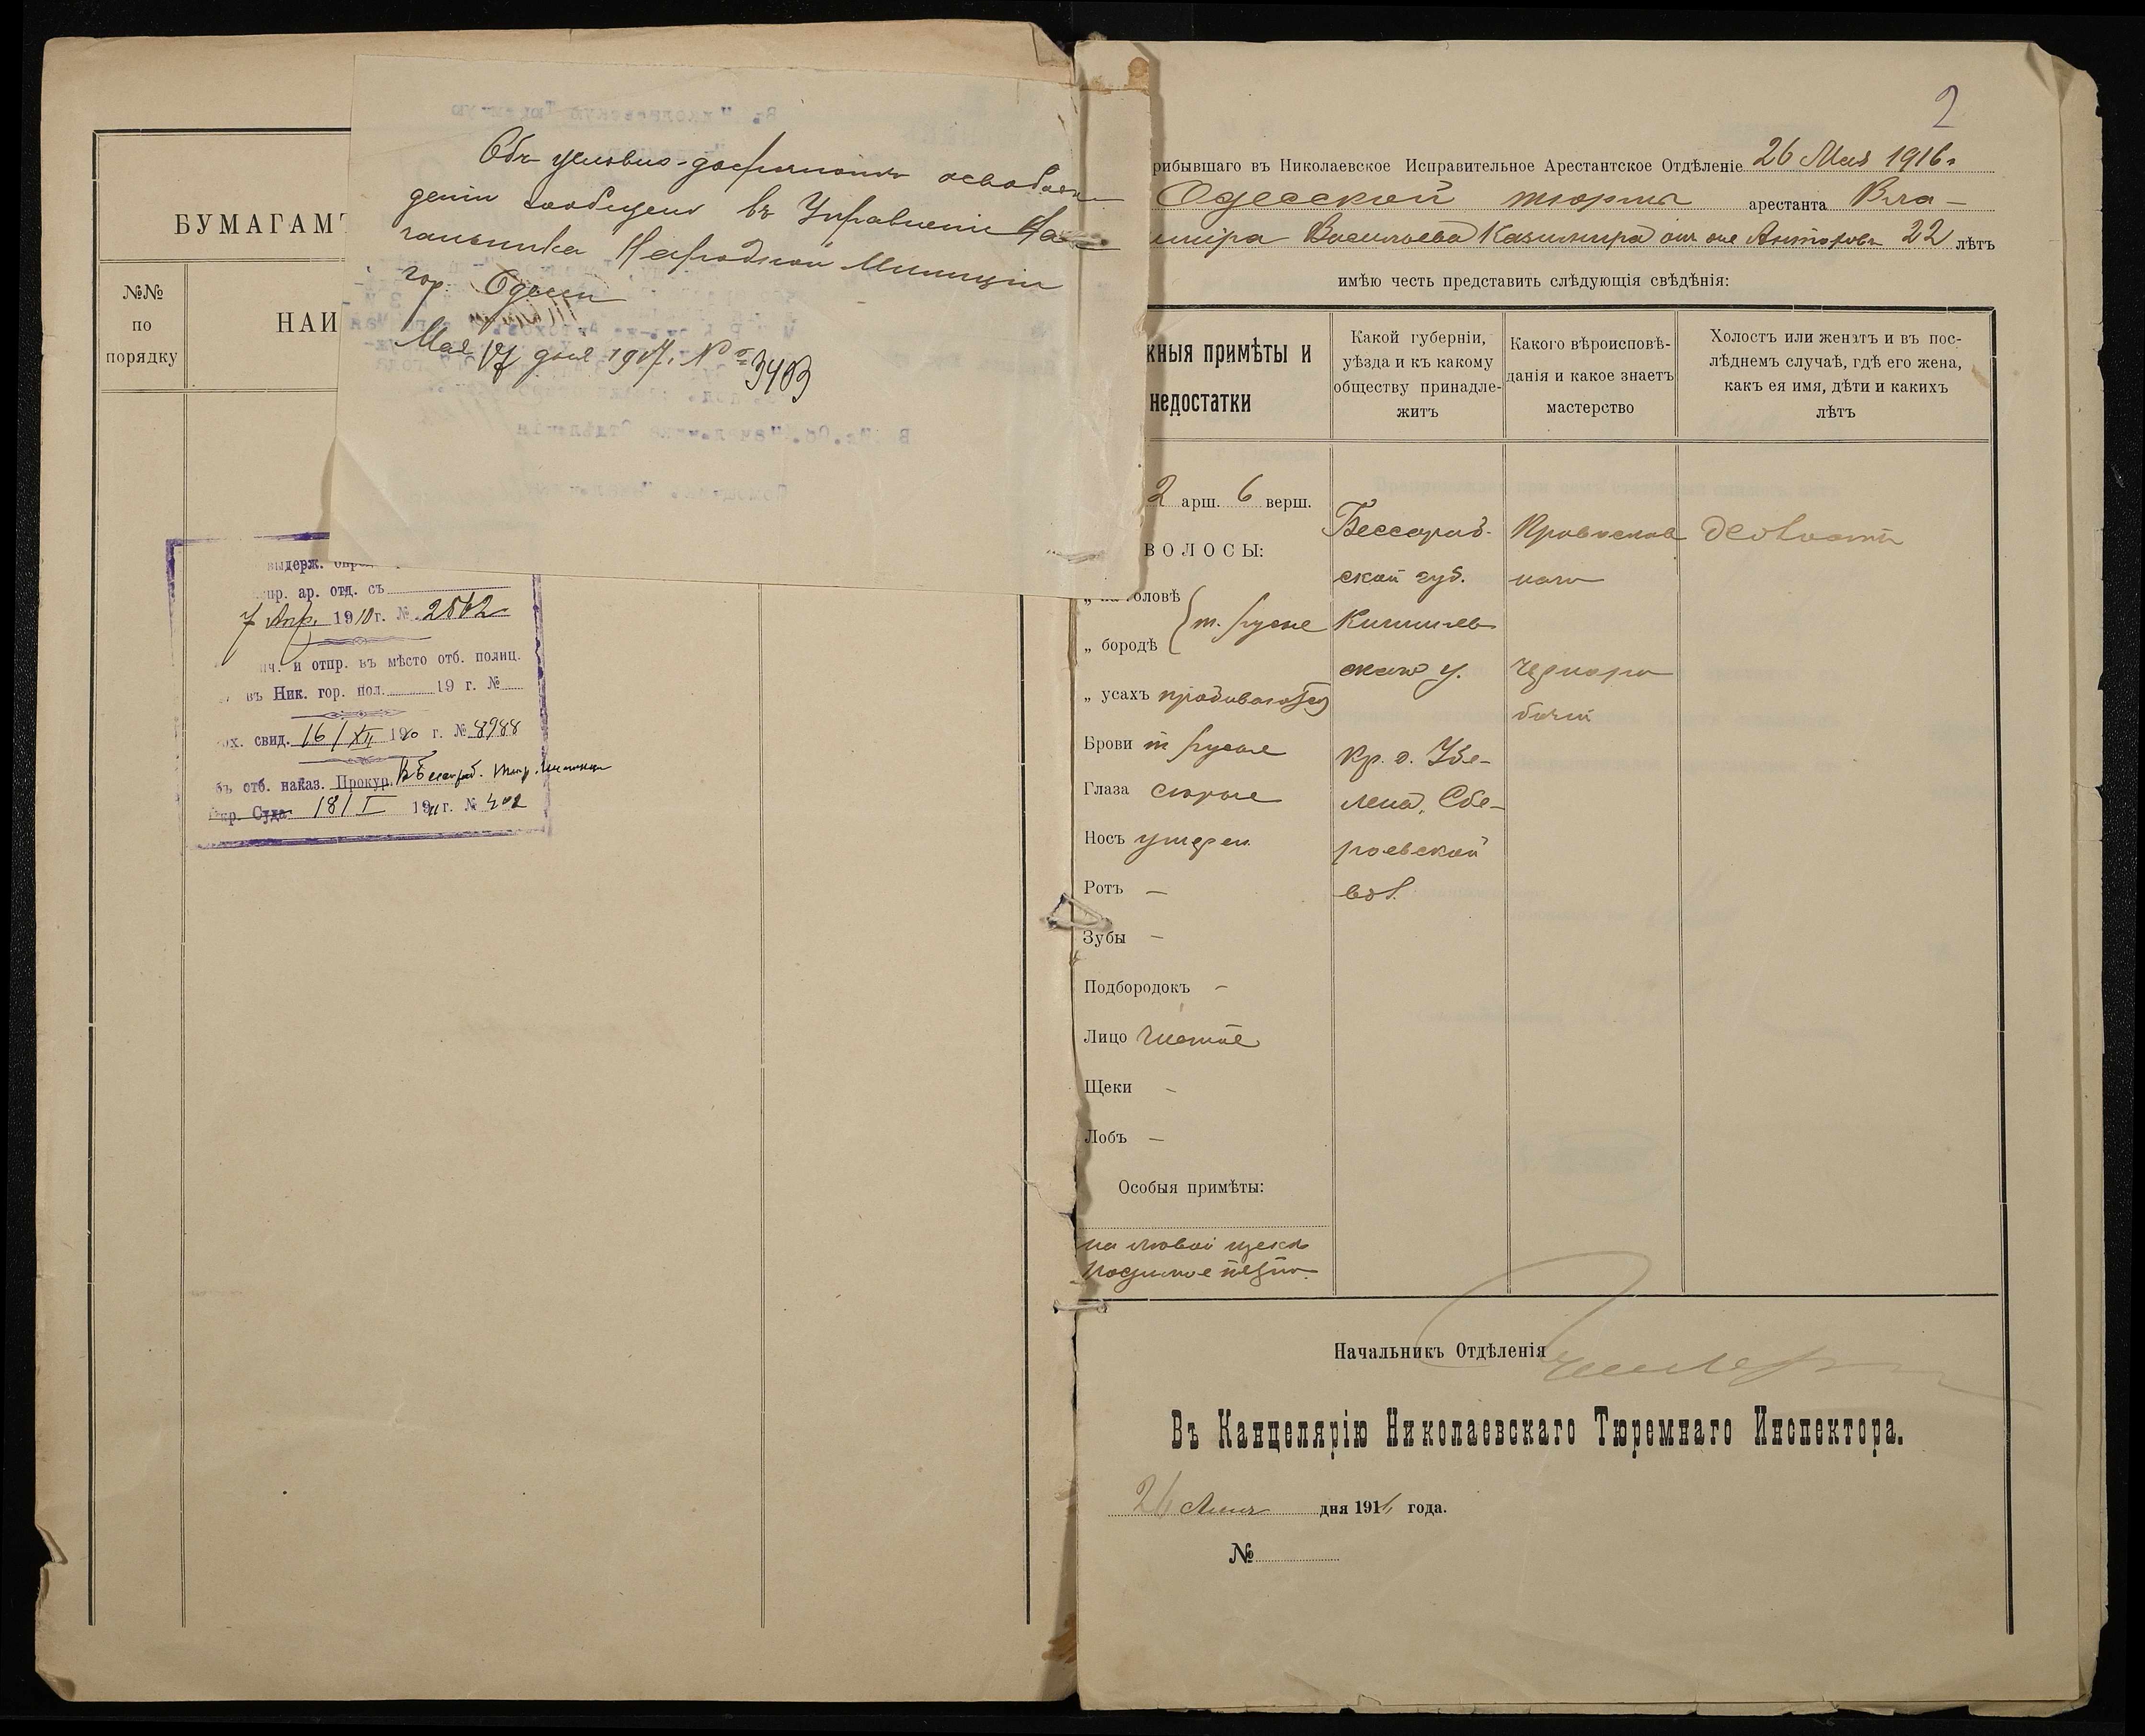 БУМАГАМ
№№
по
порядку
НАИ
Объ условно-досрочномъ освобож-
деніи сообщено въ Управленіе На-
чальника Народной Милиціи
гор. Одессы
Мая дня 1917 г. № 3403
выдерж.
пр. ар. отд. съ
7 Апр. 19 г. №
ич. и отпр. въ мѣсто отб. полиц.
въ Ник. гор. пол. 19 г. №
ох. свид. 16/XII 19 г. № 8988
бъ отб. наказ. Прокур.
кр. Суда 18/I 19 г. № 402
2
рибывшаго въ Николаевское Исправительное Арестантское Отдѣленіе 26 Мая 1916 г.
Одесской тюрьмы арестанта Вла-
иміра Васильева Казимира онъ же 22 лѣтъ
имѣю честь представить слѣдующія свѣдѣнія:
жныя примѣты и
недостатки
Какой губерніи,
уѣзда и къ какому
обществу принадле-
житъ
Какого вѣроисповѣ-
данія и какое знаетъ
мастерство
Холостъ или женатъ и въ пос-
лѣднемъ случаѣ, гдѣ его жена,
какъ ея имя, дѣти и какихъ
лѣтъ
2 арш. 6 верш.
ВОЛОСЫ:
„ на головѣ
„ бородѣ
т. русые
„ усахъ пробиваются
Брови т русые
Глаза сѣрые
Носъ умѣрен
Ротъ —
Зубы —
Подбородокъ —
Лицо чистое
Щеки —
Лобъ —
Особыя примѣты:
на лѣвой щекѣ
родимое пятно.
Бессараб-
ской губ.
Кишинев
скаго у.
кр. д.
вол.
Православ
наго
чернора
бочій
холостъ
Начальникъ Отдѣленія
Въ Канцелярію Николаевскаго Тюремнаго Инспектора.
26 дня 1916 года.
№